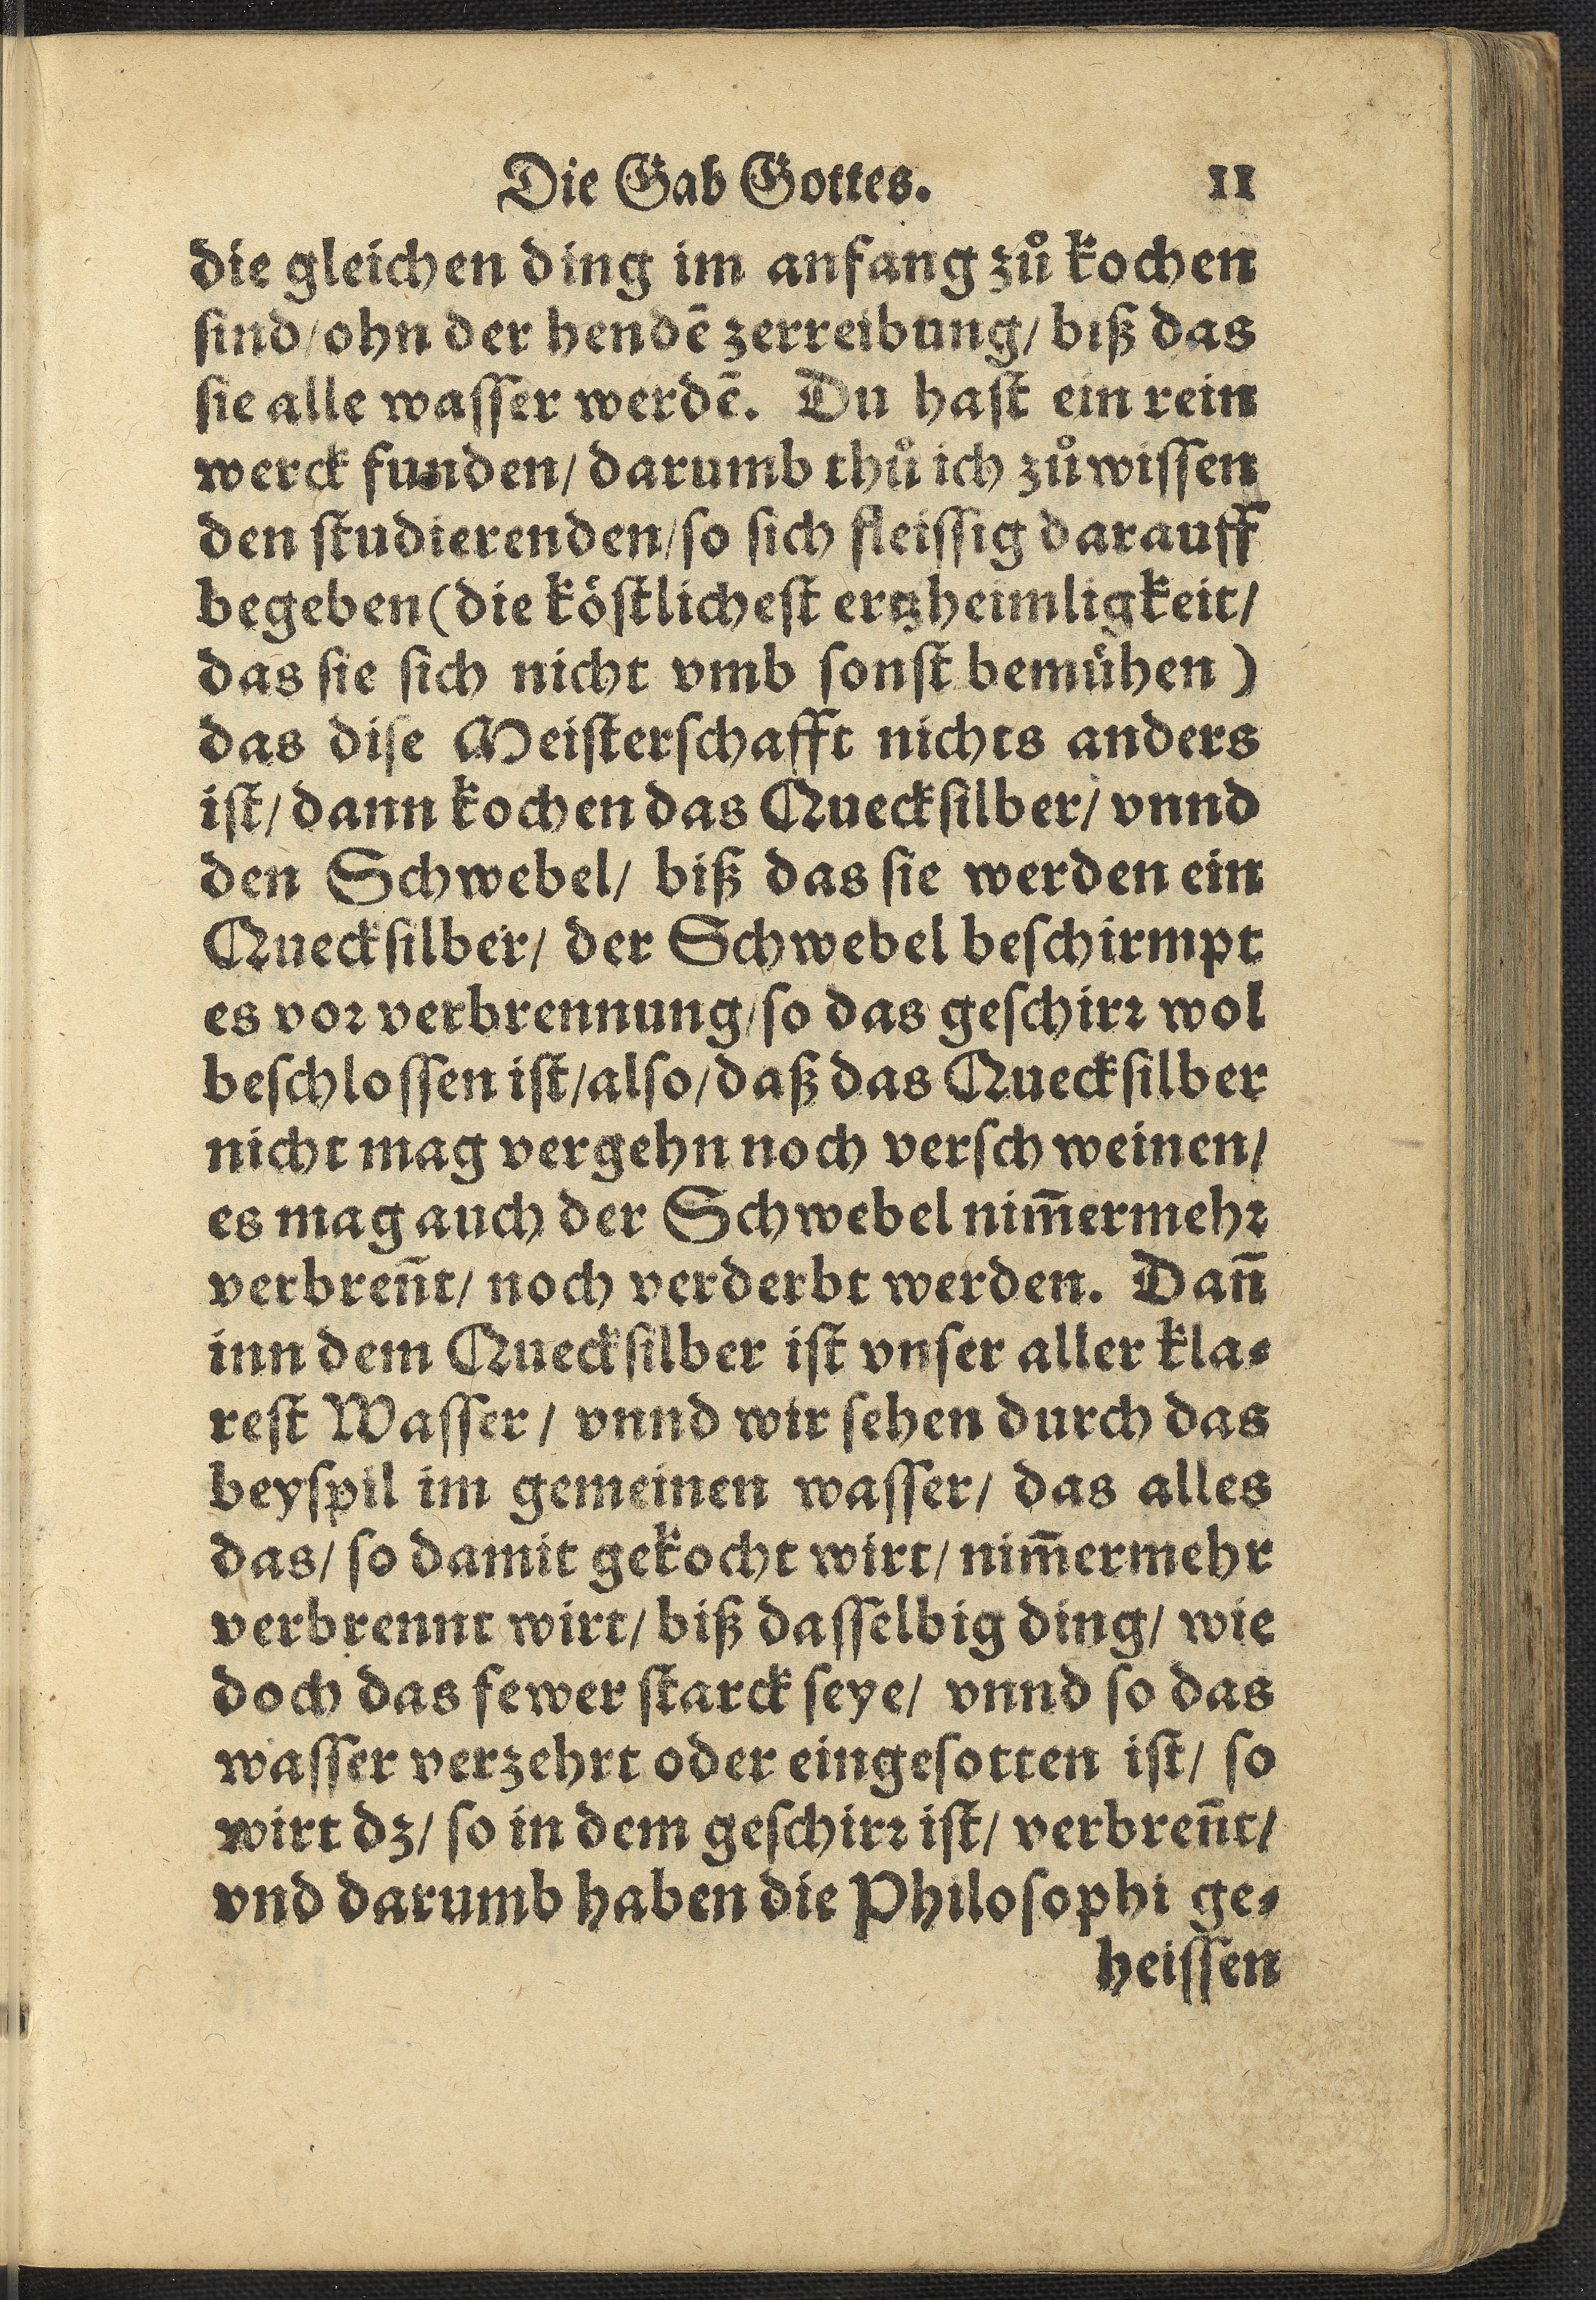 Die Gab Gottes. 11
die gleichen ding im anfang zuͦ kochen
ſind/ ohn der hendē zerreibung/ biß das
ſie alle waſſer werdē. Du haſt ein rein
werck funden/ darumb thuͦ ich zuͦ wiſſen
den ſtudierenden/ ſo ſich fleiſſig darauff
begeben (die koͤſtlicheſt ertzheimligkeit/
das ſie ſich nicht vmb ſonſt bemuͤhen)
das diſe Meiſterſchafft nichts anders
iſt/ dann kochen das Queckſilber/ vnnd
den Schwebel/ biß das ſie werden ein
Queckſilber/ der Schwebel beſchirmpt
es voꝛ verbrennung/ ſo das geſchirꝛ wol
beſchloſſen iſt/ alſo/ daß das Queckſilber
nicht mag vergehn noch verſchweinen/
es mag auch der Schwebel nim̄ermehꝛ
verbren̄t/ noch verderbt werden. Dan̄
inn dem Queckſilber iſt vnſer aller kla⸗
reſt Waſſer/ vnnd wir ſehen durch das
beyſpil im gemeinen waſſer/ das alles
das/ ſo damit gekocht wirt/ nim̄ermehr
verbrennt wirt/ biß daſſelbig ding/ wie
doch das fewer ſtarck ſeye/ vnnd ſo das
waſſer verzehrt oder eingeſotten iſt/ ſo
wirt dz/ ſo in dem geſchirꝛ iſt/ verbren̄t/
vnd darumb haben die Philoſophi ge⸗
heiſſen